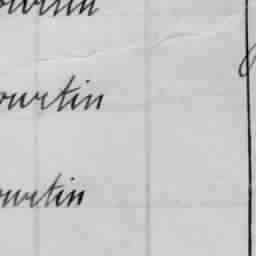 ourtin
ourtin
ourtin